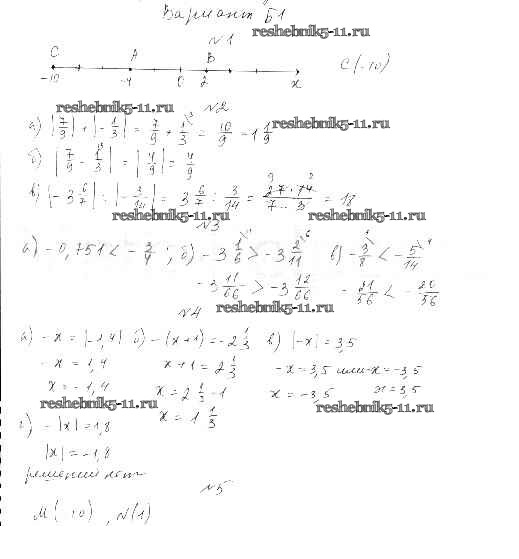 Вариант Б1
reshebnik5-11.ru
N1
C A B C(-10)
-10 -4 0 2 x
reshebnik5-11.ru N2
а) |7/9| + |-1/3| = 7/9 + 1/3 = 10/9 = 1 1/9 reshebnik5-11.ru
б) |7/9 - 1/3| = |4/9| = 4/9
в) |-3 6/7| : |-3/14| = 3 6/7 : 3/14 = 27·14/7·3 = 18
reshebnik5-11.ru reshebnik5-11.ru
N3
а) -0,751 < -3/4; б) -3 1/6 > -3 2/11 в) -3/8 < -5/14
-3 11/66 > -3 12/66 -21/56 < -20/56
reshebnik5-11.ru
N4
а) -x = |-1,4| б) -(x+1) = -2 1/3 в) |-x| = 3,5
-x = 1,4 x+1 = 2 1/3 -x = 3,5 или -x = -3,5
x = -1,4 x = 2 1/3 - 1 x = -3,5 x = 3,5
reshebnik5-11.ru x = 1 1/3 reshebnik5-11.ru
г) -|x| = 1,8
|x| = -1,8
решений нет
N5
M(-10), N(1)